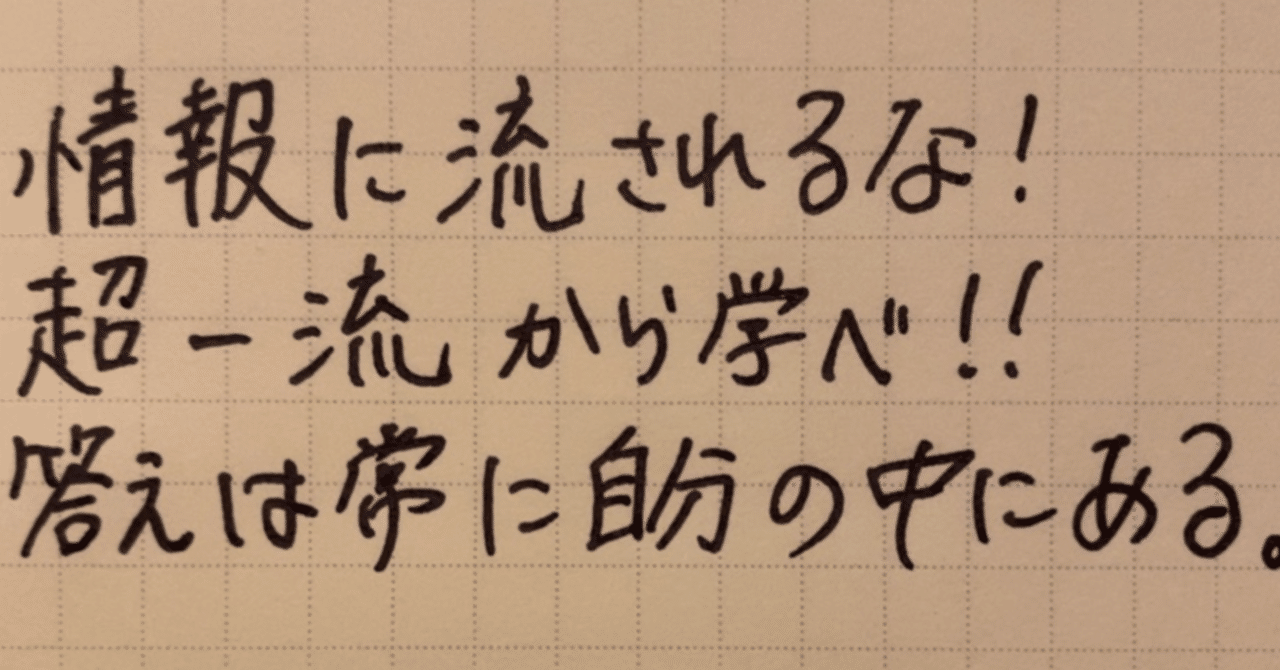 情報に流されるな!
超一流から学べ!!
答えは常に自分の中にある。